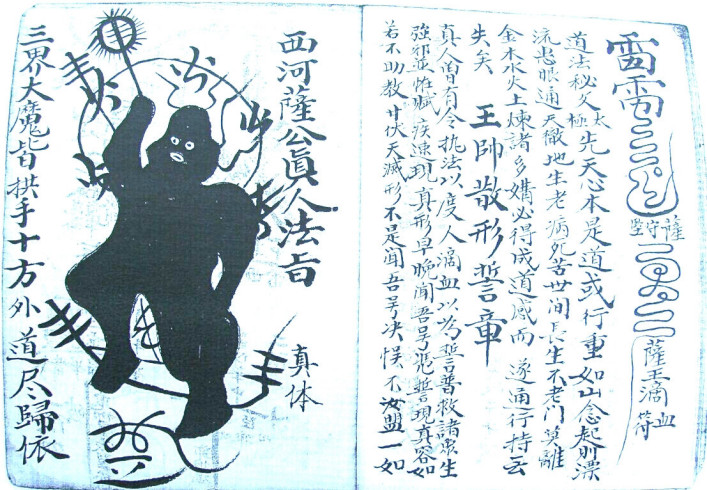 雷
薩守堅
薩王滴血符
道法秘久太極先天心本是道或行重如山念起削漂
流患眼通天徹地生老病死苦世间長生不老門莫離
金木水火土煉諸多媾必得成道感而遂通行持云
失矣 王帥散形誓章
真人曾有令执法以度人滴血以為誓普救諸眾生
強邪並 疾速現真形早晚闻吾号 誓現真容如
若不助教廿伏天滅形不是闻吾号决悮不汝盟一如
西河薩公真人法旨
真体
三界大魔皆拱手十方外道尽歸依